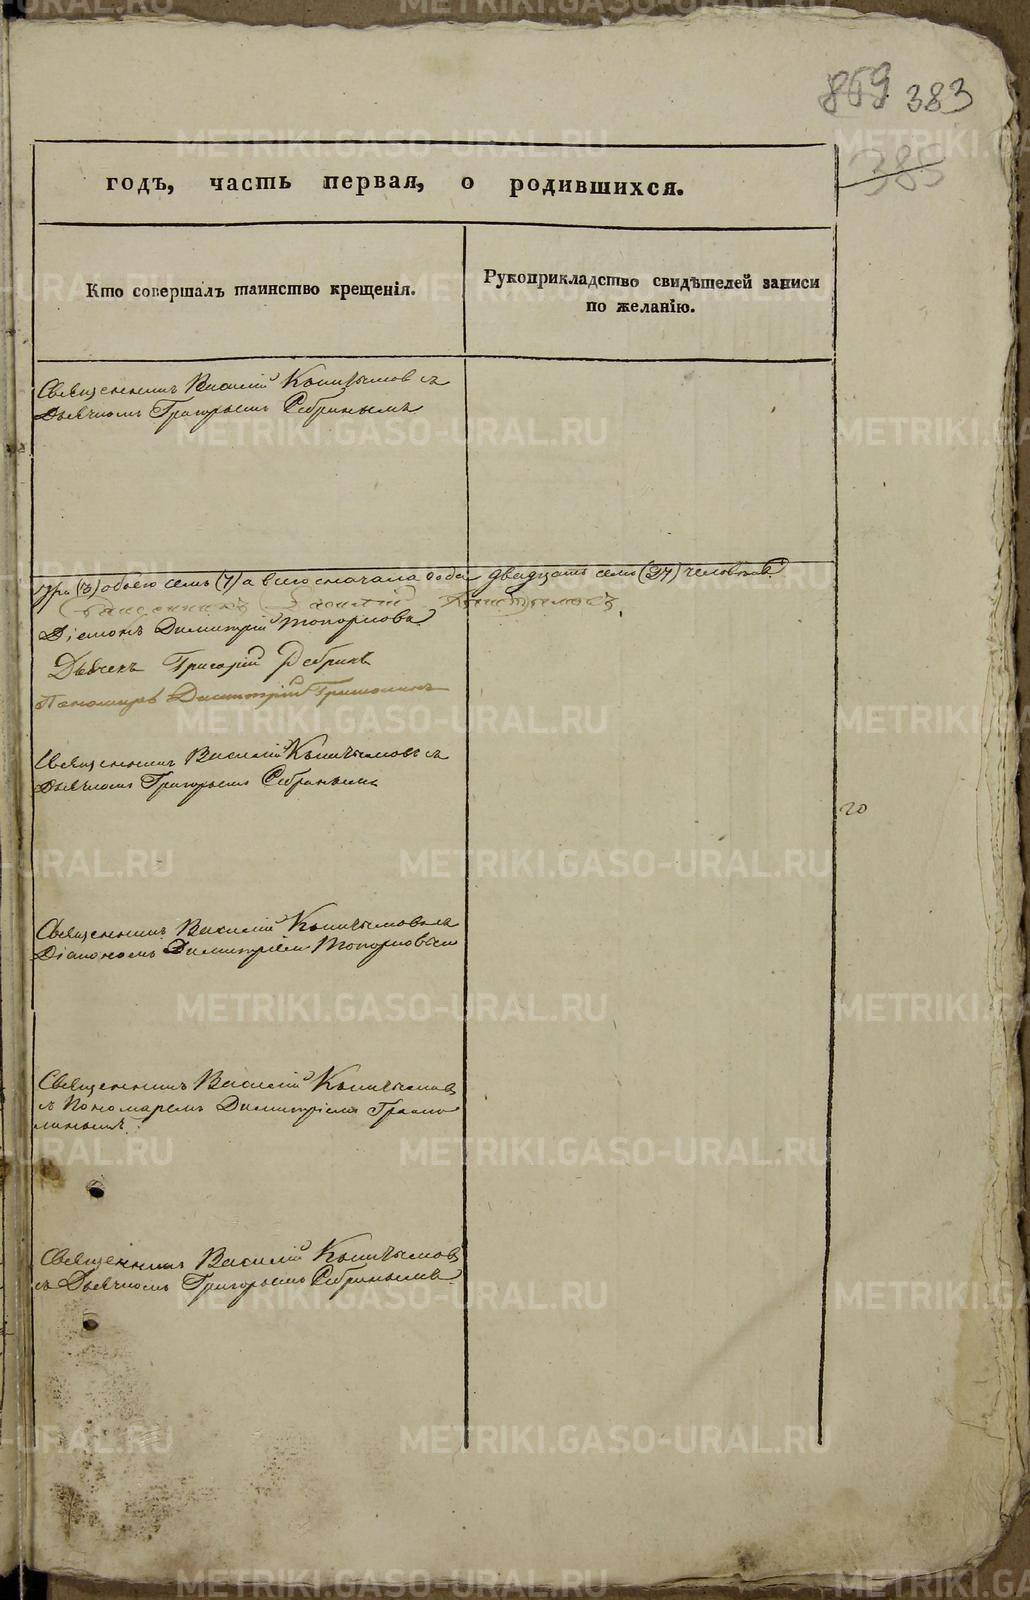 869 383
385
годъ, часть первая, о родившихся.
Кто совершалъ таинство крещенія.
Рукоприкладство свидѣтелей записи
по желанію.
Священникъ Василій Кыштымовъ съ
Дьячкомъ Григорьемъ Ребринымъ
три (3) обоего семь (7) а всего сначала года двадцать семь (27) человѣкъ
Священникъ Василій Кыштымовъ,
Діаконъ Димитрій Топорковъ
Дьячекъ Григорій Ребринъ
Пономарь Димитрій
Священникъ Василій Кыштымовъ съ
Дьячкомъ Григорьемъ Ребринымъ
20
Священникъ Василій Кыштымовъ съ
Діакономъ Димитріемъ Топорковымъ
Священникъ Василій Кыштымовъ
съ Пономаремъ Димитріемъ
Священникъ Василій Кыштымовъ
съ Дьячкомъ Григорьемъ Ребринымъ
METRIKI.GASO-URAL.RU